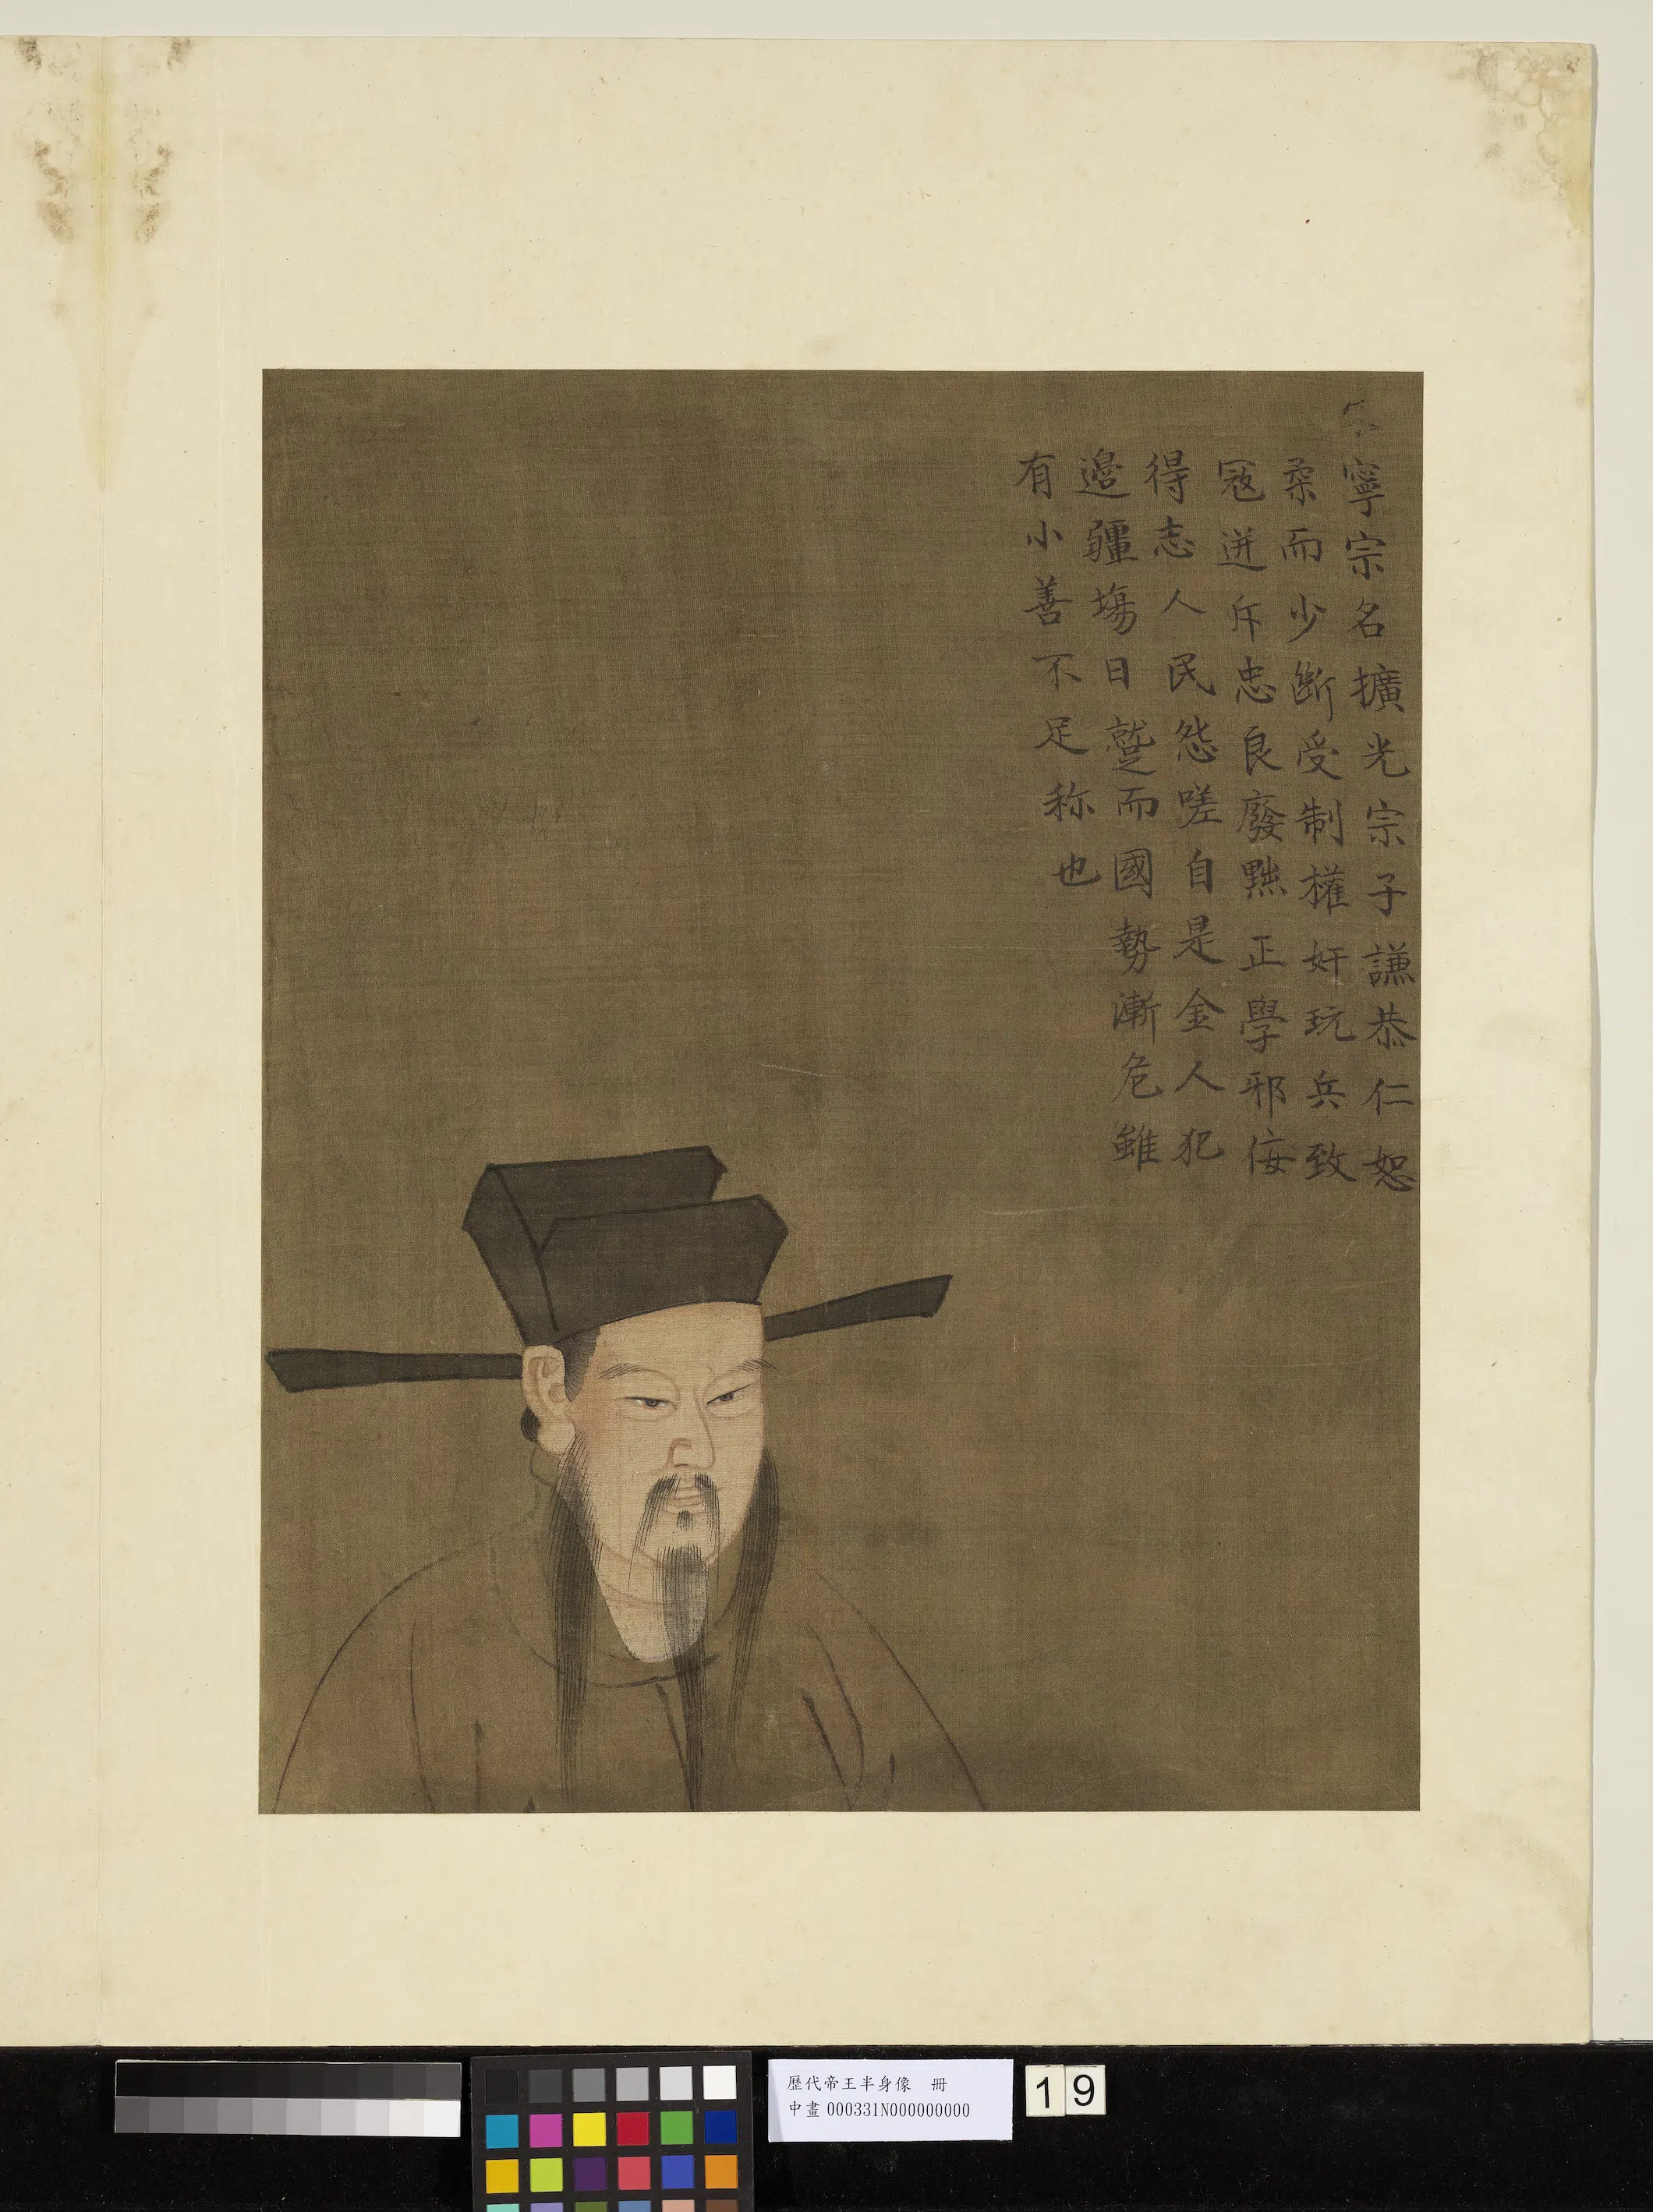 寧宗名擴光宗子謙恭仁恕
柔而少斷受制權奸玩兵致
寇迸斥忠良廢黜正學邪佞
得志人民怨嗟自是金人犯
邊疆場日蹙而國勢漸危雖
有小善不足称也
歷代帝王半身像 冊
中畫 000331N000000000
19